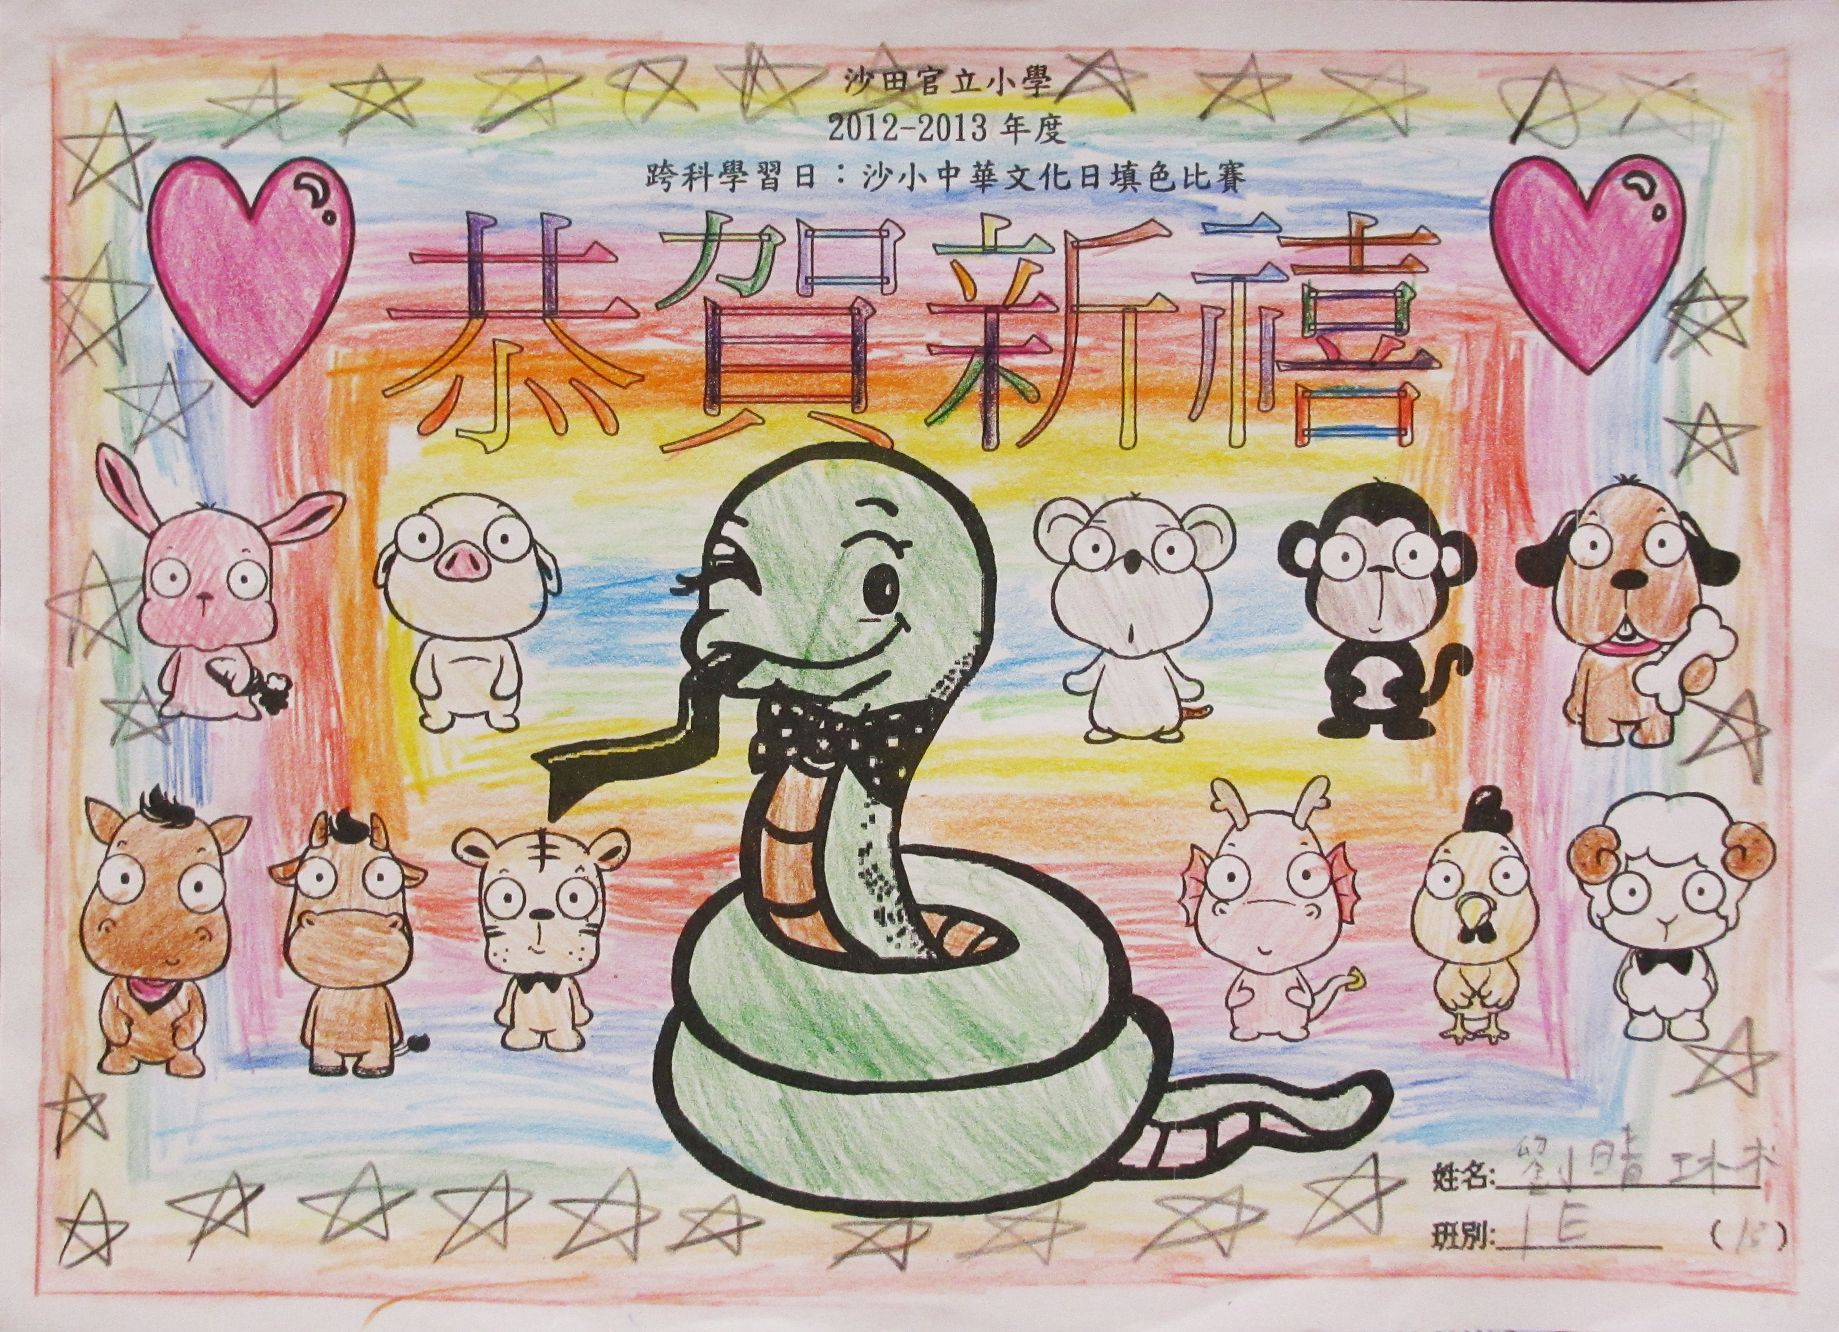 沙田官立小學
2012-2013 年度
跨科學習日：沙小中華文化日填色比賽
恭賀新禧
姓名: 劉晴琳
班別: 1E (15)